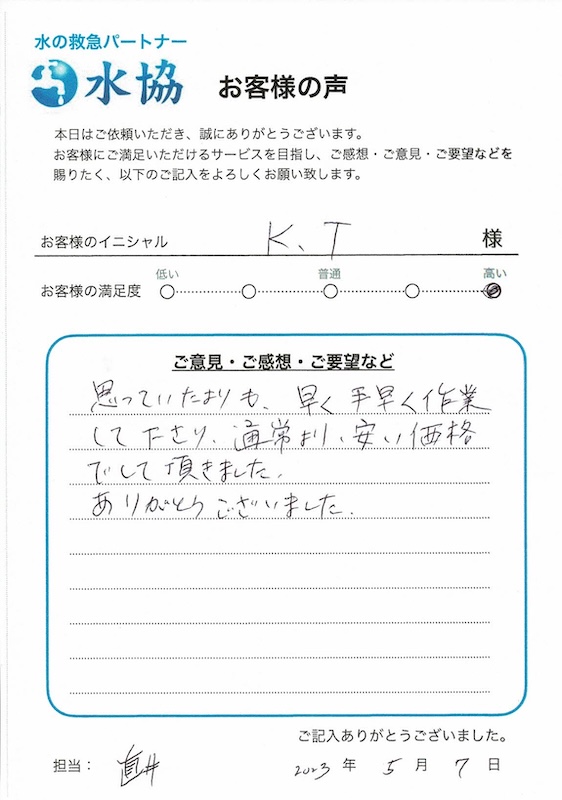 水の救急パートナー
水協 お客様の声
本日はご依頼いただき、誠にありがとうございます。
お客様にご満足いただけるサービスを目指し、ご感想・ご意見・ご要望などを
賜りたく、以下のご記入をよろしくお願い致します。
お客様のイニシャル K、T 様
低い 普通 高い
お客様の満足度
ご意見・ご感想・ご要望など
思っていたよりも、早く手早く作業
して下さり、通常より、安い価格
でして頂きました。
ありがとうございました。
ご記入ありがとうございました。
担当： 2023 年 5 月 7 日